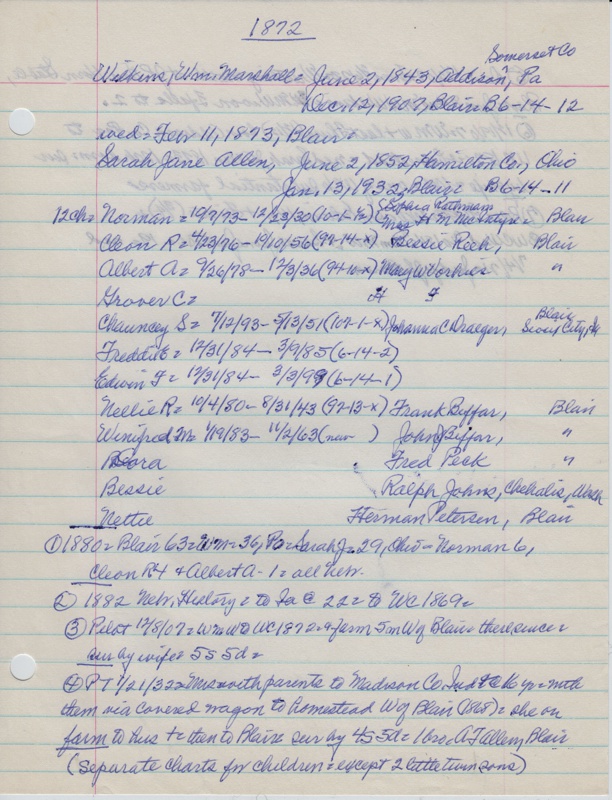 1872
Somerset Co
Wilkins, Wm. Marshall = June 2, 1843, Addison, Pa
Dec. 12, 1907, Blair B6-14-12
wed = Feb 11, 1873, Blair =
Sarah Jane Allen, June 2, 1852, Hamilton Co., Ohio
Jan. 13, 1932, Blair = B6-14-11
12ch = Norman = 10/7/73 - 12/23/30 (10-1-½) Mrs H M McIntyre = Blair
Cleon R = 4/23/76 - 10/10/56 (97-14-x) Bessie Reek, Blair
Albert A = 9/26/78 - 12/3/36 (97-10-x) Mary W Vorhies "
Grover C =
Chauncey S = 7/12/93 - 5/13/51 (107-1-8) Johanna C Draeger, Blair Sioux City, Ia
Freddie E = 12/31/84 - 3/9/85 (6-14-2)
Edwin F = 12/31/84 - (6-14-1)
Nellie R = 10/4/80 - 8/31/43 (97-13-x) Frank Biffar, Blair
Winifred M = 1/19/83 - 11/2/63 (new ) John J Biffar, "
Dora Fred Peck "
Bessie Ralph Johns, Chehalis, Wash
Nettie Herman Petersen, Blair
① 1880 = Blair 63 = Wm = 36, Pa = Sarah J = 29, Ohio = Norman 6,
Cleon R 4 + Albert A - 1 = all Neb.
② 1882 Neb. History = to Ia @ 22 = to WC 1869 =
③ Pilot 12/8/07 = Wm W to WC 1872 = farm 5 m W of Blair = there since =
sur by wife 5S 5d =
④ PT 1/21/32 = Mrs W with parents to Madison Co Ind @ 16 yr = with
them via covered wagon to homestead W of Blair (1868) = she on
farm to hus + = then to Blair = sur by 4S 5d = 1 bro. A J Allen, Blair
(Separate charts for children = except 2 little twin sons)